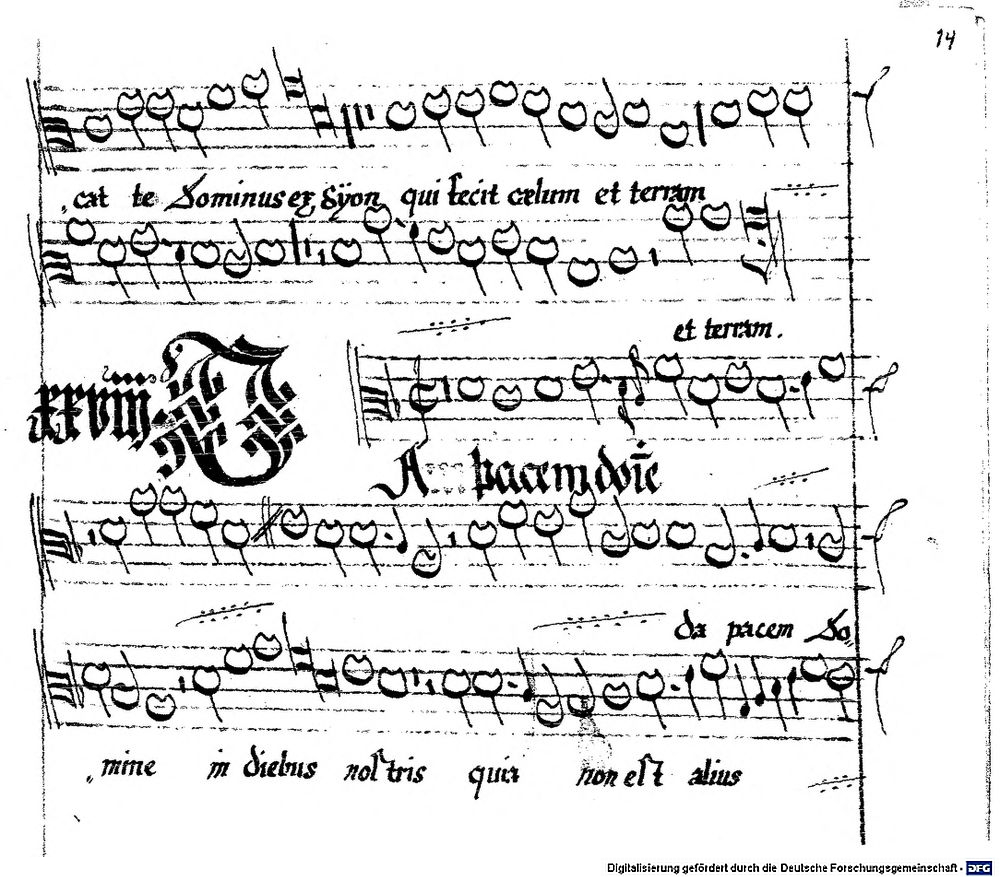 14
cat te Dominus ex Syon qui fecit cœlum et terram
et terram.
xxviij
DA pacem dōīe
da pacem Do„
„mine in diebus nostris quia non est alius
Digitalisierung gefördert durch die Deutsche Forschungsgemeinschaft - DFG